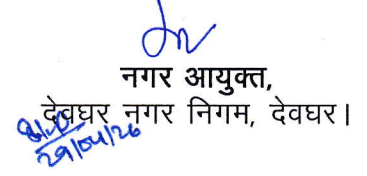 नगर आयुक्त,
देवघर नगर निगम, देवघर।
29/04/26